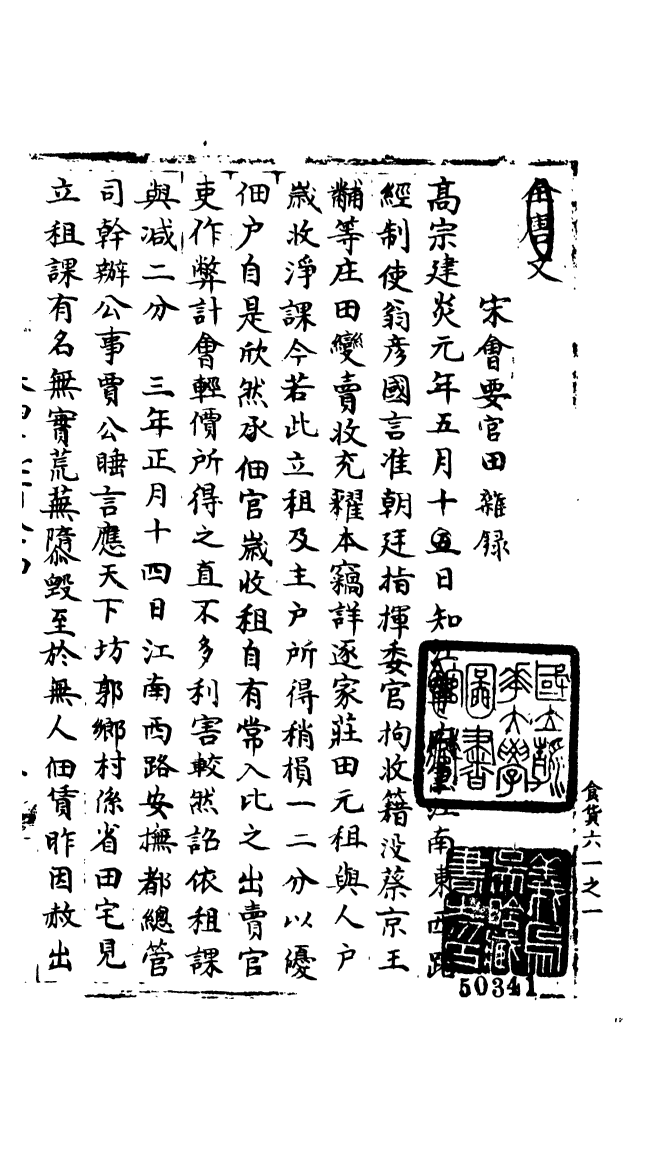 全唐文
宋會要官田雜録
高宗建炎元年五月十五日知江寧府兼江南東西路
經制使翁彦國言准朝廷指揮委官拘收籍没蔡京王
黼等庄田變賣收充糴本竊詳逐家莊田元租與人户
嵗收淨課今若此立租及主户所得稍損一二分以優
佃户自是欣然承佃官嵗收租自有常入比之出賣官
吏作弊計會輕價所得之直不多利害較然詔依租課
與减二分　三年正月十四日江南西路安撫都總管
司幹辦公事賈公晔言應天下坊郭鄉村係省田宅見
立租課有名無實荒蕪隳毀至於無人佃賃昨因赦出
國立
大學
圖書
食貨六一之一
50341